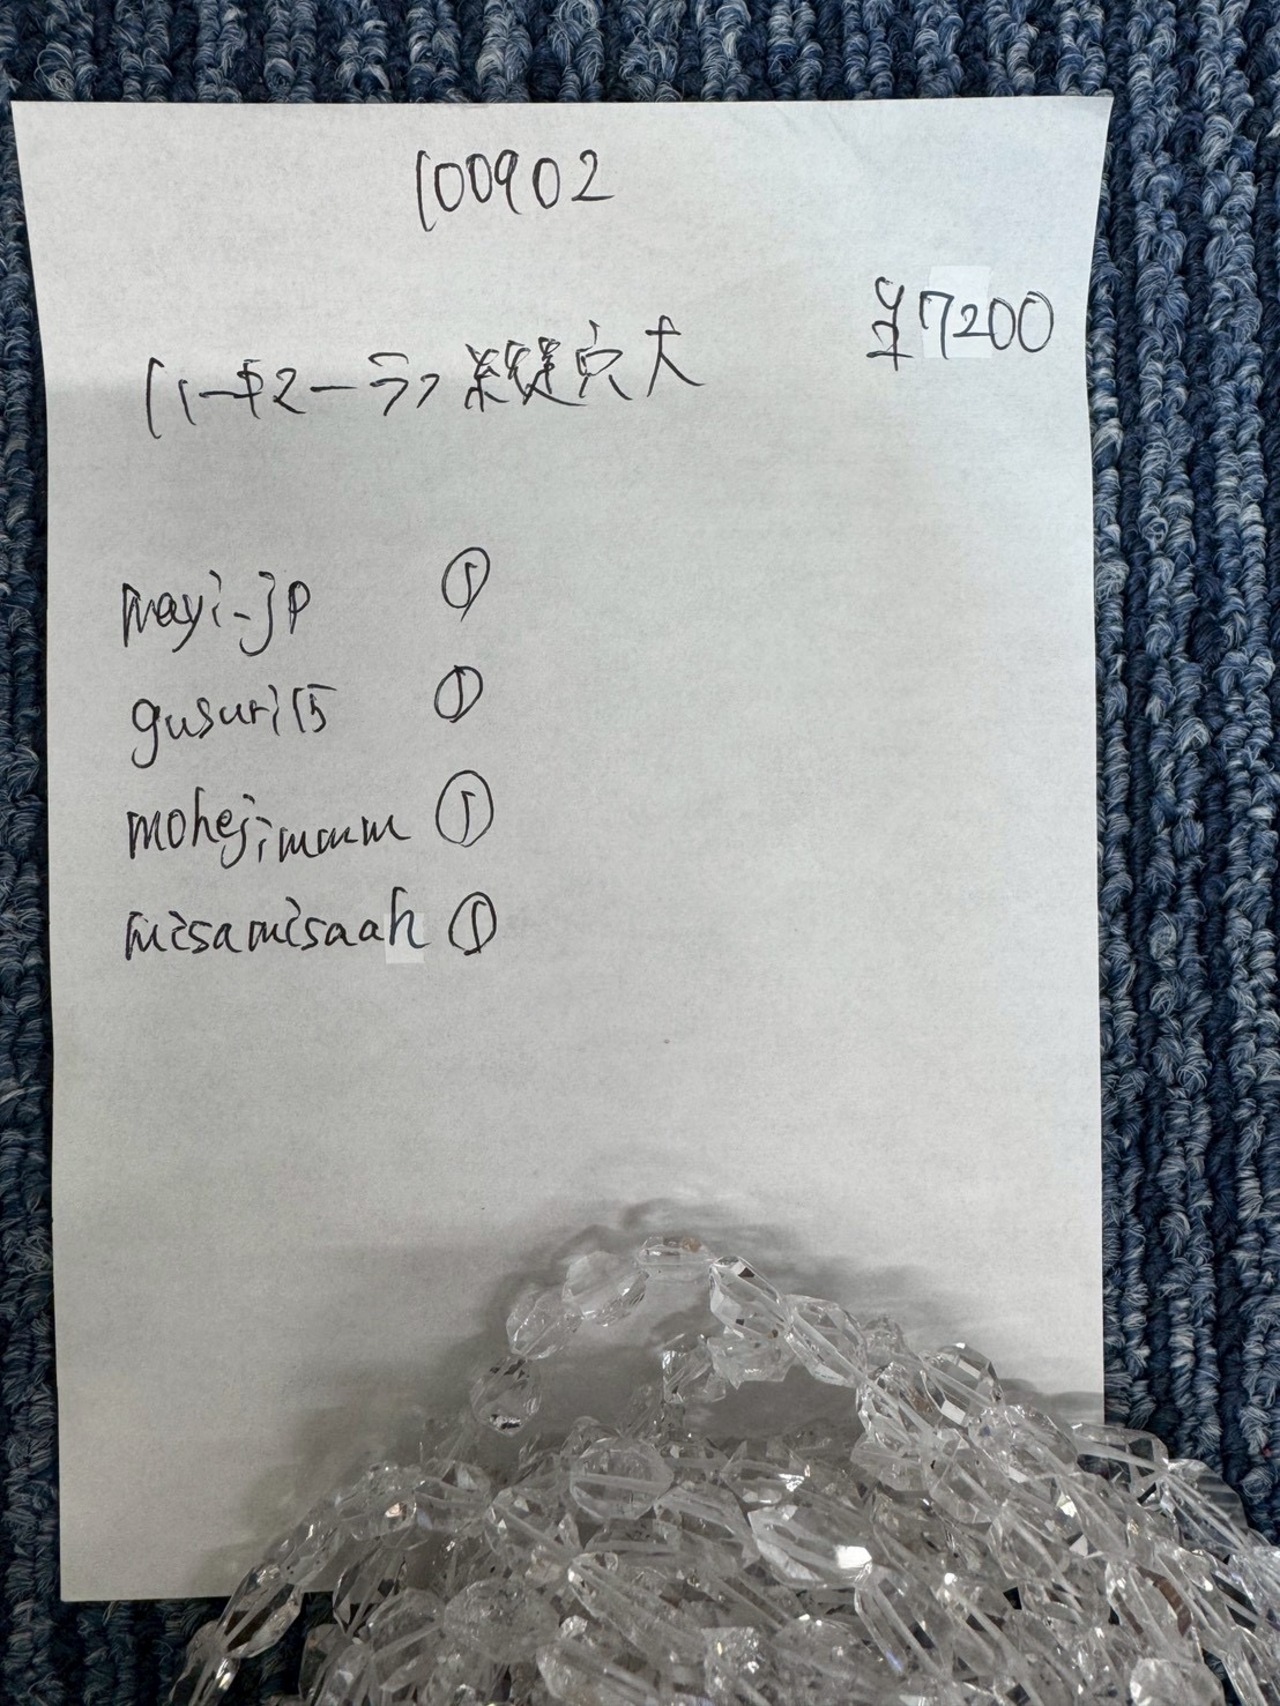 100902
¥7200
ハーキマーラフ縦穴大
mayi-jp ①
gusuri15 ①
mohejimmm ①
misamisaah ①